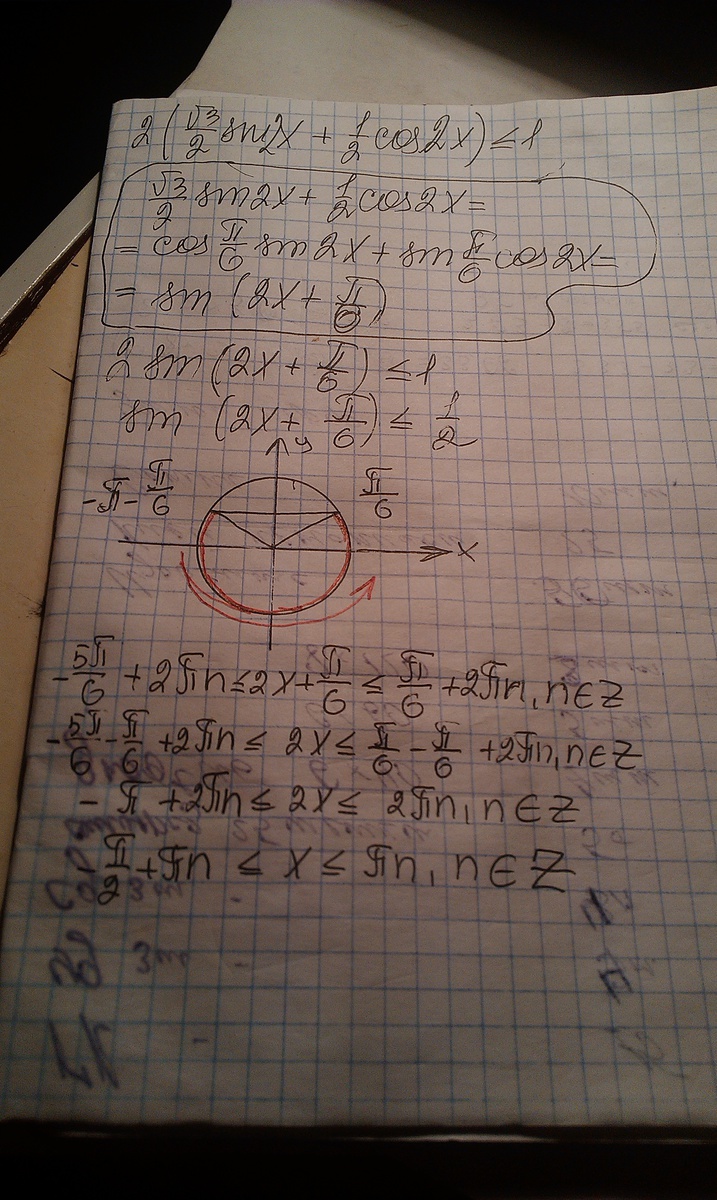 2(√3/2 sin2x + 1/2 cos2x) ≤ 1
√3/2 sin2x + 1/2 cos2x =
= cos π/6 sin2x + sin π/6 cos2x =
= sin (2x + π/6)
2 sin (2x + π/6) ≤ 1
sin (2x + π/6) ≤ 1/2
y
-π - π/6
π/6
x
-5π/6 + 2πn ≤ 2x + π/6 ≤ π/6 + 2πn, n ∈ Z
-5π/6 - π/6 + 2πn ≤ 2x ≤ π/6 - π/6 + 2πn, n ∈ Z
-π + 2πn ≤ 2x ≤ 2πn, n ∈ Z
-π/2 + πn ≤ x ≤ πn, n ∈ Z